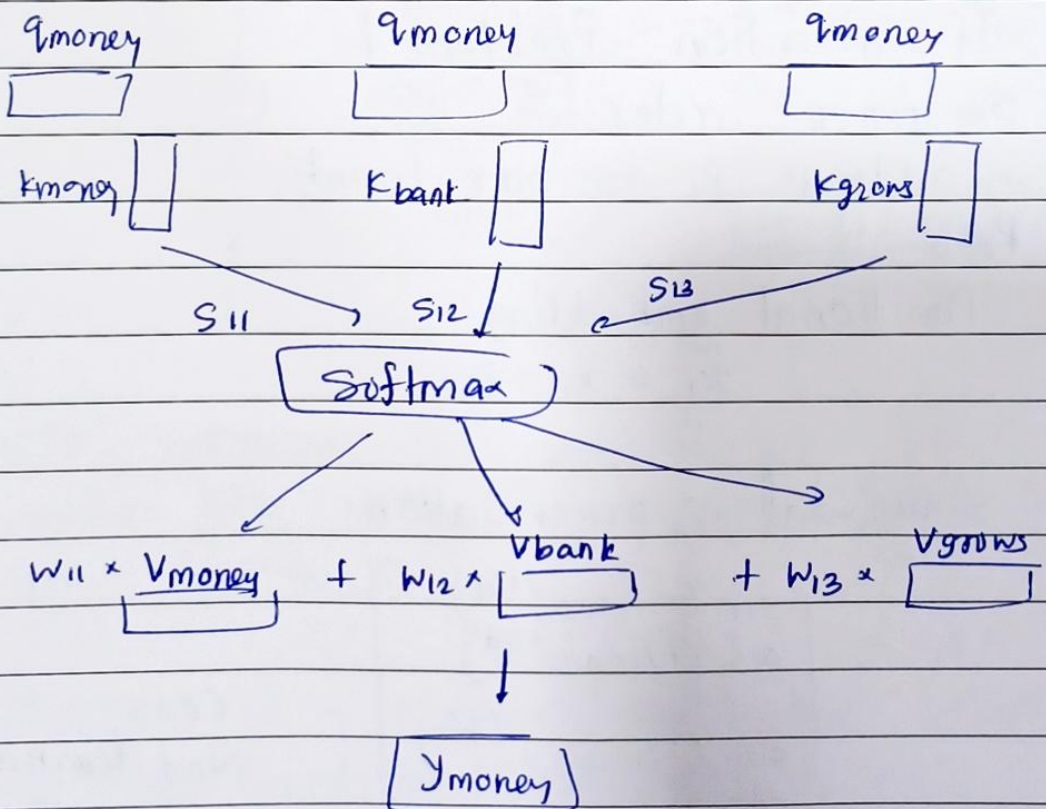 qmoney qmoney qmoney
Kmoney Kbank Kgrows
S11 S12 S13
Softmax
W11 × Vmoney + W12 × Vbank + W13 × Vgrows
Ymoney